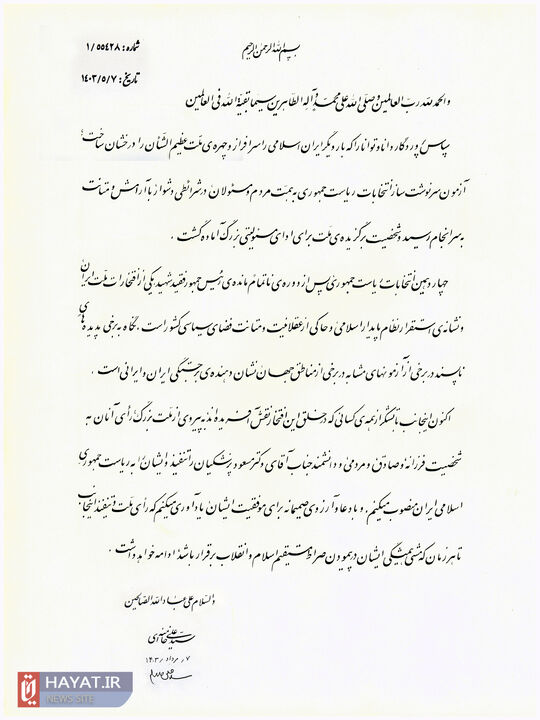 بسم الله الرحمن الرحیم
شماره: ۱/۵۵۴۲۸
تاریخ: ۱۴۰۳/۵/۷
والحمد لله رب العالمین و صلی الله علی محمد و آله الطاهرین سیما بقیة الله فی العالمین
سپاس پروردگار دانا و توانا را که بار دیگر ایران اسلامی را سرافراز و چهره‌ی ملت عظیم الشأن را درخشان ساخت؛
آزمون سرنوشت‌ساز انتخابات ریاست جمهوری به همت مردم و مسئولان در شرائطی دشوار با آرامش و متانت
به سرانجام رسید و شخصیت برگزیده‌ی ملت برای ادای مسئولیتی بزرگ آماده گشت .
چهاردهمین انتخابات ریاست جمهوری پس از دوره‌ی ناتمام مانده‌ی رئیس جمهور فقید شهید یکی از افتخارات ملت ایران
و نشانه‌ی استقرار نظام پایدار اسلامی و حاکی از عقلانیت و متانت فضای سیاسی کشور است . نگاه به برخی پدیده‌های
ناپسند در برخی از آزمونهای مشابه در برخی از مناطق جهان نشان دهنده‌ی برجستگی ایران و ایرانی است .
اکنون اینجانب با تشکر از همه‌ی کسانی که در خلق این افتخار نقش آفریده‌اند به پیروی از ملت بزرگ رأی آنان به
شخصیت فرزانه و صادق و مردمی و دانشمند جناب آقای دکتر مسعود پزشکیان را تنفیذ و ایشان را به ریاست جمهوری
اسلامی ایران منصوب میکنم . و با دعا و آرزوی صمیمانه برای موفقیت ایشان یادآوری میکنم که رأی ملت و تنفیذ اینجانب
تا هر زمان که مشی همیشگی ایشان در پیمودن صراط مستقیم اسلام و انقلاب برقرار باشد ادامه خواهد داشت .
والسلام علی عباد الله الصالحین
سید علی خامنه‌ای
۷ / مرداد / ۱۴۰۳
HAYAT.IR
NEWS SITE